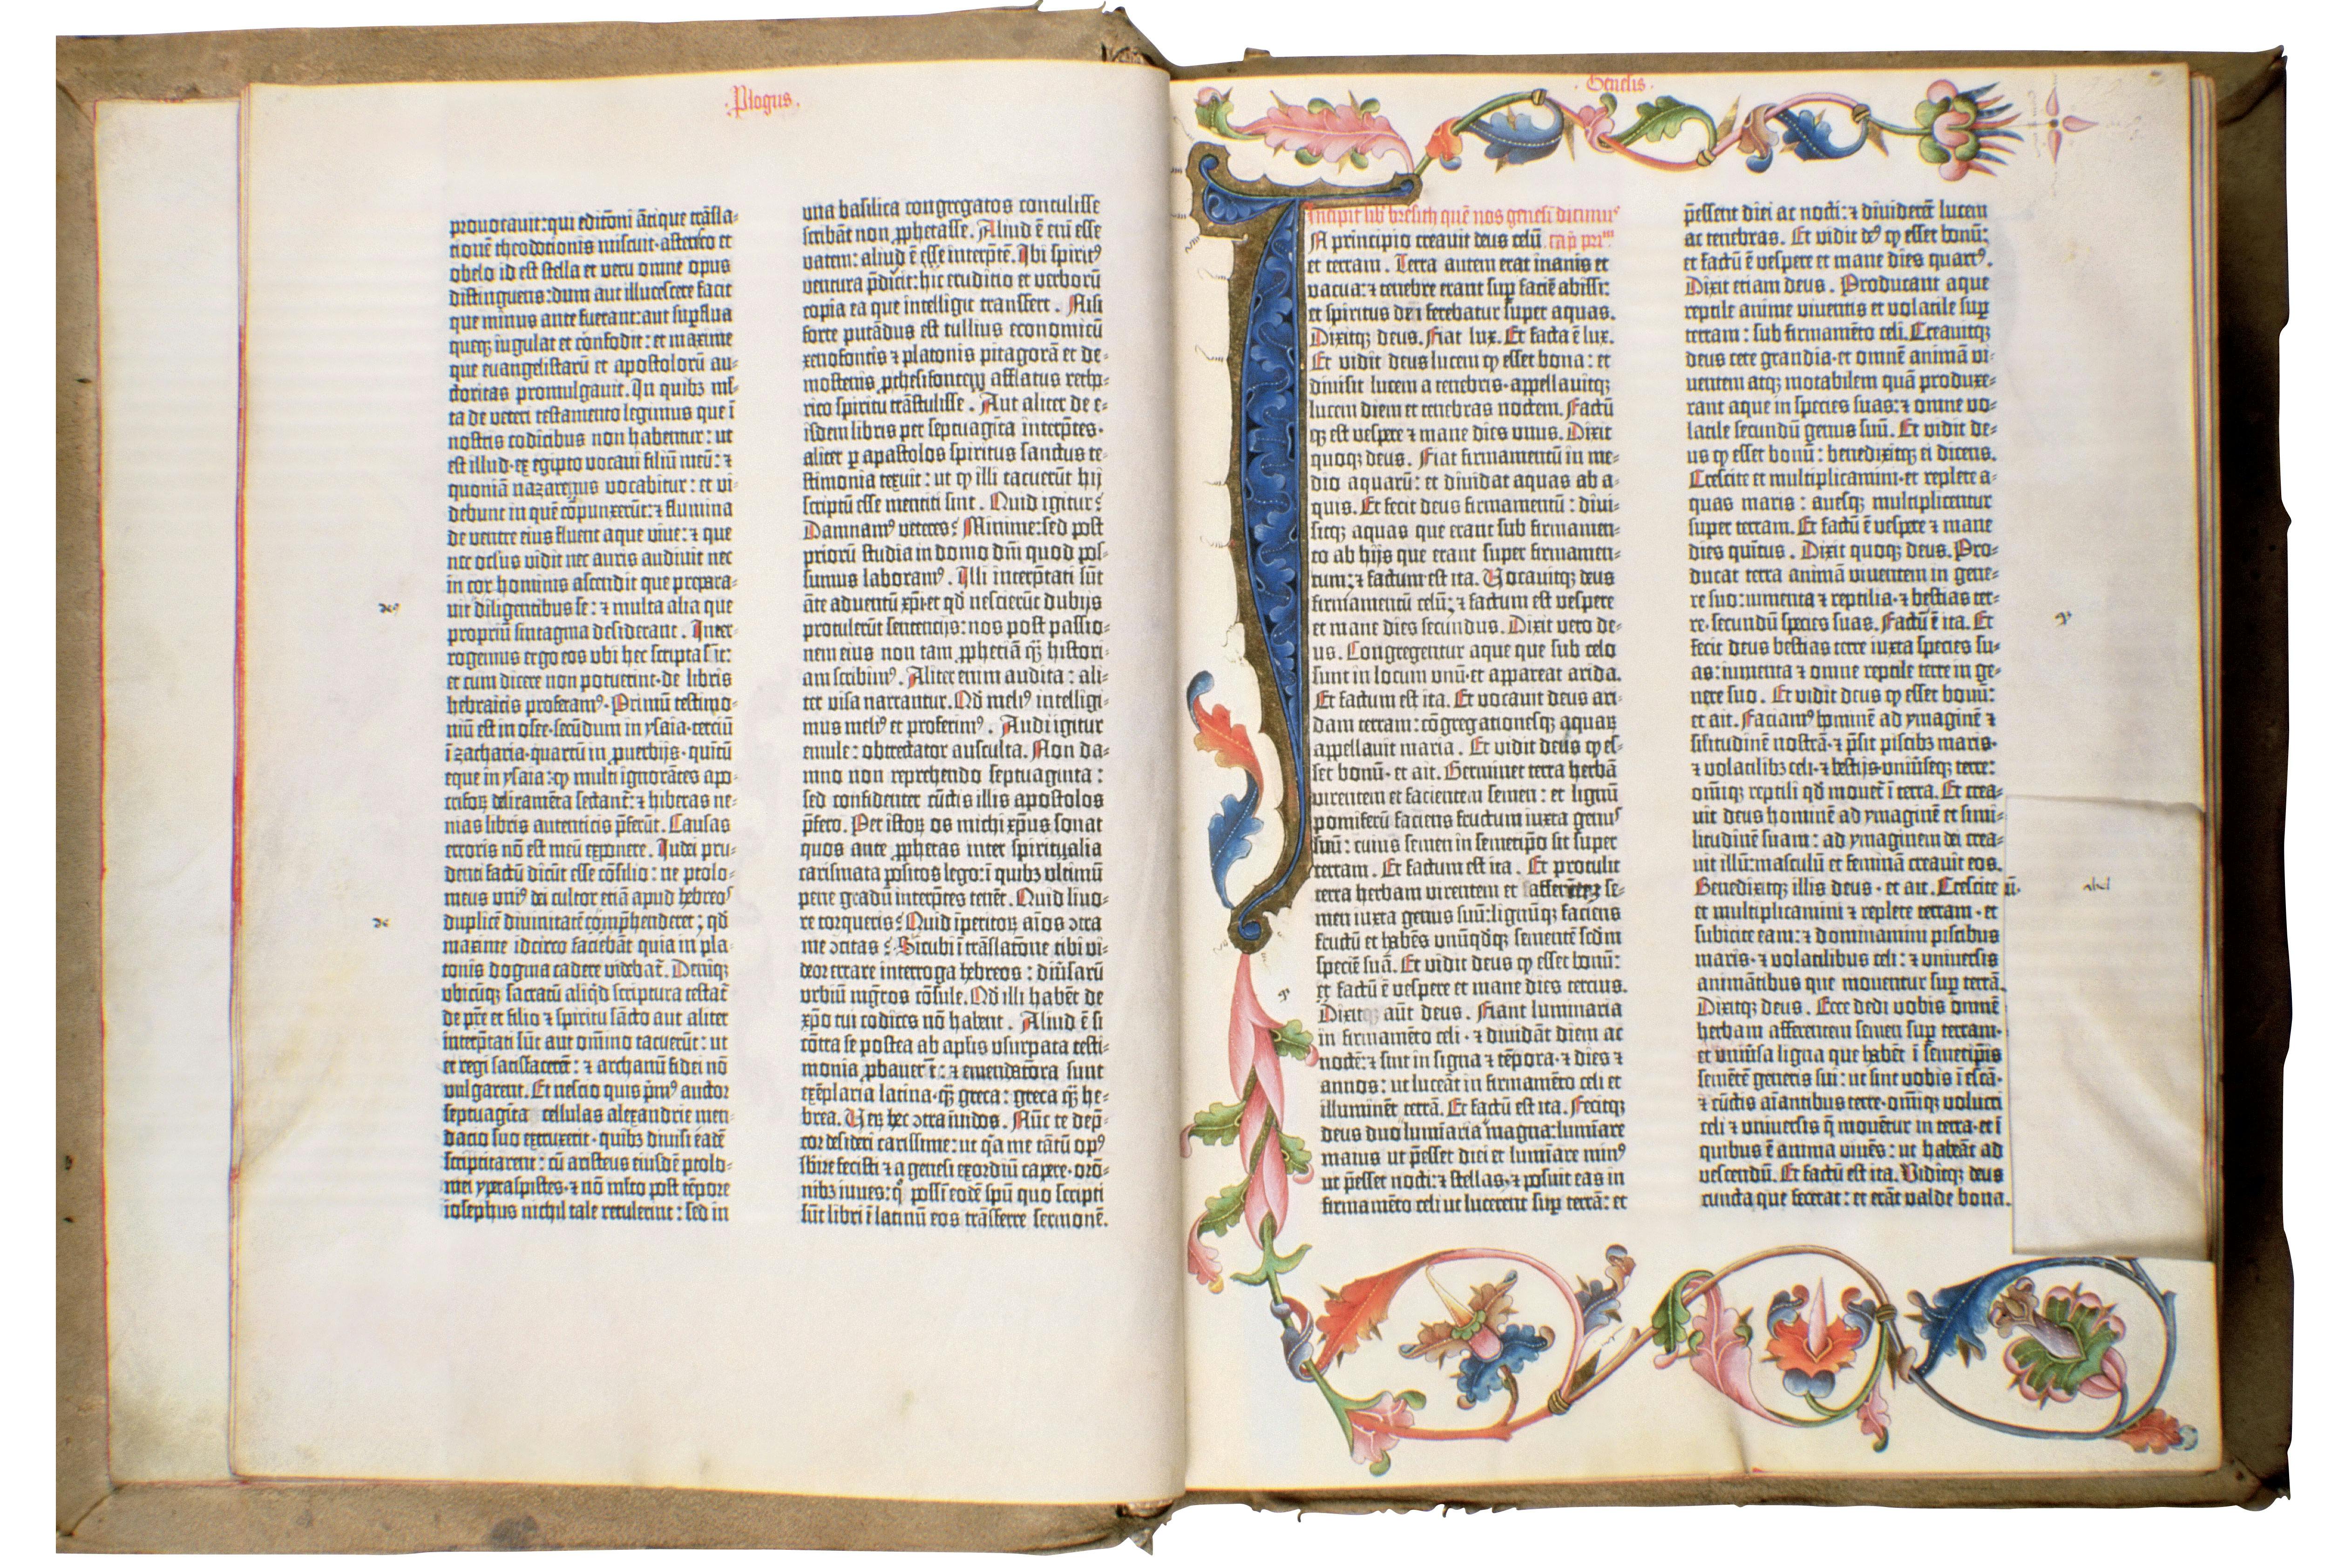 ·Ꝓlogus·
prouocauit: qui editioni ātique trāsla-
tionē theodotionis miscuit· asterisco et
obelo id est stella et veru omne opus
distinguens: dum aut illucescere facit
que minus ante fuerant: aut suꝑflua
queqꝫ iugulat et confodit: et maxime
que euangelistarū et apostolorū au-
ctoritas promulgauit. In quibꝫ ml-
ta de veteri testamento legimus que ī
nostris codicibus non habentur: ut
est illud· ex egipto vocaui filiū meū: ⁊
quoniā nazareus vocabitur: et vi-
debunt in quē cōpunxerūt: ⁊ flumina
de ventre eius fluent aque viue: ⁊ que
nec oculus vidit nec auris audiuit nec
in cor hominis ascendit que prepara-
uit diligentibus se: ⁊ multa alia que
propriū sintagma desiderant. Inter-
rogemus ergo eos vbi hec scripta sīt:
et cum dicere non potuerint· de libris
hebraicis proferamꝰ. Primū testimo-
niū est in osee· secūdum in ysaia· terciū
ī zacharia· quartū in ꝓuerbijs· quītū
eque in ysaia: ꝙ multi ignorātes apo-
crifoꝝ deliramēta sectant̄: ⁊ hiberas ne-
nias libris autenticis p̄ferūt. Causas
erroris nō est meū exponere. Iudei pru-
denti factū dicūt esse cōsilio: ne ptolo-
meus vniꝰ dei cultor etiā apud hebreos
duplicē diuinitatē comp̄henderet: qd̄
maxime idcirco faciebāt quia in pla-
tonis dogma cadere videbat̄. Deniqꝫ
vbicūqꝫ sacratū aliqd̄ scriptura testat̄
de pr̄e et filio ⁊ spiritu sācto aut aliter
interp̄tati sūt aut om̄ino tacuerūt: ut
et regi satisfacerēt: ⁊ archanū fidei nō
vulgarent. Et nescio quis p̄mꝰ auctor
septuagīta cellulas alexandrie men-
dacio suo extruxerit· quibꝫ diuisi eadē
scriptitarent: cū aristeus eiusdē ptolo-
mei yperaspistes· ⁊ nō mlto post tēpore
iosephus nichil tale retulerint: sed in
una basilica congregatos contulisse
scribāt non ꝓphetasse. Aliud ē enī esse
vatem: aliud ē esse interp̄tē. Ibi spiritꝰ
ventura p̄dicit: hic eruditio et verborū
copia ea que intelligit transfert. Nisi
forte putādus est tullius economicū
xenofontis ⁊ platonis pitagorā et de-
mostenis ꝓthesifontem afflatus retho-
rico spiritu trāstulisse. Aut aliter de e-
isdem libris per septuagīta interp̄tes·
aliter ꝑ apostolos spiritus sanctus te-
stimonia texuit: ut ꝙ illi tacuerūt hij
scriptū esse mentiti sint. Quid igitur?
Damnamꝰ veteres? Minime: sed post
priorū studia in domo dn̄i quod pos-
sumus laboramꝰ. Illi interp̄tati sūt
āte aduentū xp̄i· et qd̄ nescierūt dubijs
protulerūt sentencijs: nos post passio-
nem eius non tam ꝓphetiā qꝫ̄ histori-
am scribimꝰ. Aliter enim audita: ali-
ter visa narrantur. Qd̄ meliꝰ intelligi-
mus meliꝰ et proferimꝰ. Audi igitur
emule: obtrectator ausculta. Non da-
mno non reprehendo septuaginta:
sed confidenter cūctis illis apostolos
p̄fero. Per istoꝝ os michi xp̄us sonat
quos ante ꝓphetas inter spiritualia
carismata positos lego: ī quibꝫ vltimū
pene gradū interp̄tes tenēt. Quid liuo-
re torqueris? Quid īperitoꝝ aīos ↄtra
me ↄcitas? Sicubi ī trāslatōne tibi vi-
deor errare interroga hebreos: diūsarū
vrbiū mgr̄os cōsule. Qd̄ illi habēt de
xp̄o tui codices nō habent. Aliud ē si
cōtra se postea ab aplis̄ vsurpata testi-
monia ꝓbauerūt: ⁊ emendatiora sunt
exēplaria latina· qꝫ̄ greca: greca qꝫ̄ he-
brea. Verū hec ↄtra īuidos. Nūc te dep̄-
cor desideri carissime: ut q̄a me tātū opꝰ
sbire fecisti ⁊ a genesi exordiū capere· orō-
nibꝫ iuues: qͦ possī eodē spū quo scripti
sūt libri ī latinū eos trāsferre sermonē.
·Genesis·
Incipit lib̄ bresith quē nos genesī dicimꝰ
IN principio creauit deus celū cap̄ prim
et terram. Terra autem erat inanis et
vacua: ⁊ tenebre erant suꝑ faciē abissi:
et spiritus dei ferebatur super aquas.
Dixitqꝫ deus. Fiat lux. Et facta ē lux.
Et vidit deus lucem ꝙ esset bona: et
diuisit lucem a tenebris· appellauitqꝫ
lucem diem et tenebras noctem. Factū
qꝫ est vespere ⁊ mane dies vnus. Dixit
quoqꝫ deus. Fiat firmamentū in me-
dio aquarū: et diuidat aquas ab a-
quis. Et fecit deus firmamentū: diui-
sitqꝫ aquas que erant sub firmamen-
to ab hijs que erant super firmamen-
tum: ⁊ factum est ita. Vocauitqꝫ deus
firmamentū celū: ⁊ factum est vespere
et mane dies secundus. Dixit vero de-
us. Congregentur aque que sub celo
sunt in locum vnū· et appareat arida.
Et factum est ita. Et vocauit deus ari-
dam terram: cōgregationesqꝫ aquaꝝ
appellauit maria. Et vidit deus ꝙ es-
set bonū· et ait. Germinet terra herbā
virentem et facientem semen: et lignū
pomiferū faciens fructum iuxta genus
suū: cuius semen in semetip̄o sit super
terram. Et factum est ita. Et protulit
terra herbam virentem et afferentez se-
men iuxta genus suū: lignūqꝫ faciens
fructū et habēs vnūqdqꝫ sementē scd̄m
speciē suā. Et vidit deus ꝙ esset bonū:
et factū ē vespere et mane dies tercius.
Dixit aūt deus. Fiant luminaria
in firmamēto celi· ⁊ diuidāt diem ac
noctē: ⁊ sint in signa ⁊ tēpora· ⁊ dies ⁊
annos: ut luceāt in firmamēto celi et
illuminēt terrā. Et factū est ita. Fecitqꝫ
deus duo luminaria magna: lumīare
maius ut p̄esset diei et lumīare minꝰ
ut p̄esset nocti: ⁊ stellas· ⁊ posuit eas in
firmamēto celi ut lucerent suꝑ terrā: et
p̄essent diei ac nocti: ⁊ diuiderēt lucem
ac tenebras. Et vidit dꝰ ꝙ esset bonū:
et factū ē vespere et mane dies quartꝰ.
Dixit etiam deus. Producant aque
reptile anime viuentis et volatile suꝑ
terram: sub firmamēto celi. Creauitqꝫ
deus cete grandia· et omnē animā vi-
uentem atqꝫ motabilem quā produxe-
rant aque in species suas: ⁊ omne vo-
latile secundū genus suū. Et vidit de-
us ꝙ esset bonū: benedixitqꝫ ei dicens.
Crescite et multiplicamini· et replete a-
quas maris: auesqꝫ multiplicentur
super terram. Et factū ē vespere ⁊ mane
dies quītus. Dixit quoqꝫ deus. Pro-
ducat terra animā viuentem in gene-
re suo: iumenta ⁊ reptilia· ⁊ bestias ter-
re· secundū species suas. Factū ē ita. Et
fecit deus bestias terre iuxta species su-
as: iumenta ⁊ omne reptile terre in ge-
nere suo. Et vidit deus ꝙ esset bonū:
et ait. Faciamꝰ hominē ad ymaginē ⁊
silitudinē nostrā· ⁊ p̄sit piscibꝫ maris·
⁊ volatilibꝫ celi· ⁊ bestijs· vniūseqꝫ terre:
om̄iqꝫ reptili qd̄ mouet̄ ī terra. Et crea-
uit deus hominē ad ymaginē et simi-
litudinē suam: ad ymaginem dei crea-
uit illū: masculū et feminā creauit eos.
Benedixitqꝫ illis deus· et ait. Crescite
et multiplicamini ⁊ replete terram· et
subicite eam: ⁊ dominamini piscibus
maris· ⁊ volatilibus celi: ⁊ vniuersis
animātibus que mouentur suꝑ terrā.
Dixitqꝫ deus. Ecce dedi vobis omnē
herbam afferentem semen suꝑ terram·
et vniūsa ligna que habēt ī semetip̄is
semētē generis sui: ut sint vobis ī escā·
⁊ cūctis aīantibus terre· om̄iqꝫ volucri
celi ⁊ vniuersis q̄ mouētur in terra· et ī
quibus ē anima viuēs: ut habeāt ad
vescendū. Et factū est ita. Viditqꝫ deus
cuncta que fecerat: et erāt valde bona.